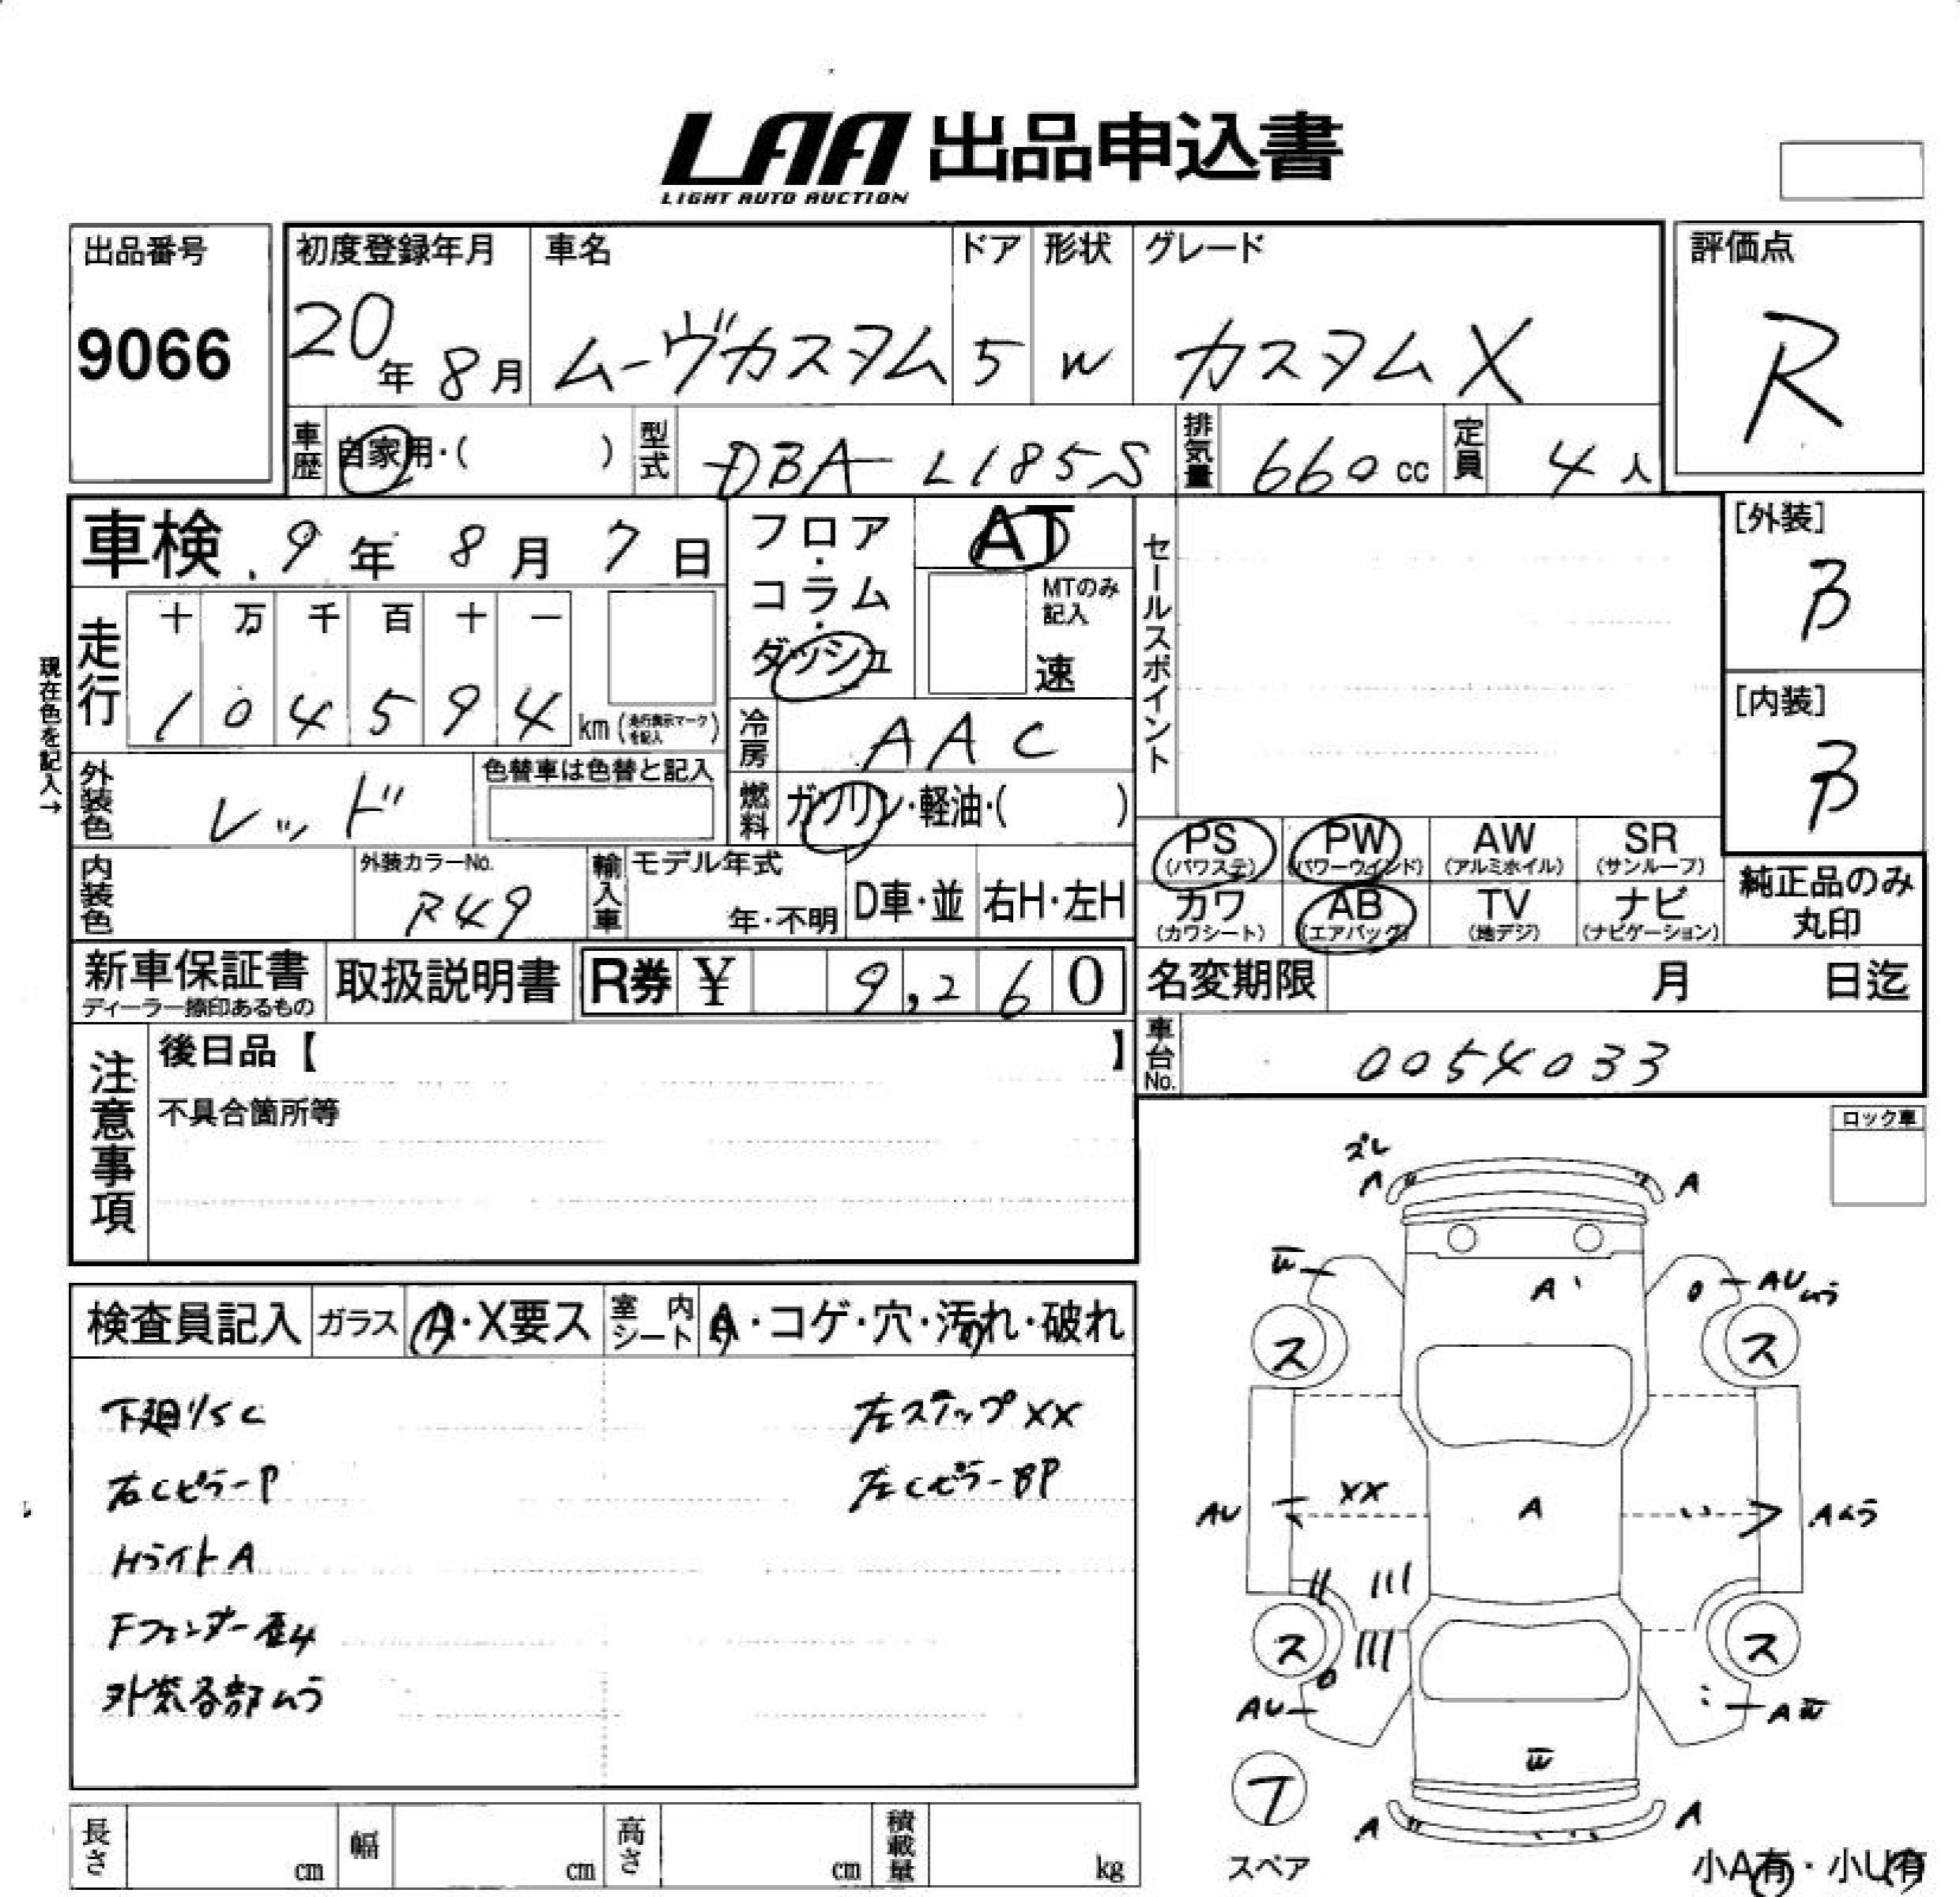 LAA 出品申込書
LIGHT AUTO AUCTION
出品番号
9066
初度登録年月
20年 8月
車名
ムーヴカスタム
ドア
5
形状
W
グレード
カスタムX
評価点
R
車歴 自家用・( )
型式 DBA-L185S
排気量 660cc
定員 4人
車検 9年 8月 7日
フロア・コラム・ダッシュ
AT
MTのみ記入
速
セールスポイント
[外装]
B
[内装]
B
現在色を記入→
走行
十 万 千 百 十 一
1 0 4 5 9 4 km (走行表示マークを記入)
冷房 AAC
外装色 レッド
色替車は色替と記入
燃料 ガソリン・軽油・( )
PS (パワステ)
PW (パワーウインド)
AW (アルミホイル)
SR (サンルーフ)
カワ (カワシート)
AB (エアバッグ)
TV (地デジ)
ナビ (ナビゲーション)
純正品のみ丸印
内装色
外装カラーNo.
R49
輸入車
モデル年式
年・不明
D車・並
右H・左H
新車保証書
ディーラー捺印あるもの
取扱説明書
R券 ¥ 9,260
名変期限 月 日迄
車台No. 0054033
注意事項
後日品【 】
不具合箇所等
ロック車
検査員記入
ガラス A・X要ス
室内シート A・コゲ・穴・汚れ・破れ
下廻りSC
左ステップXX
右CピラーP
左CピラーBP
HライトA
外装各部ムラ
ズレ
A
A
W
A
AUムラ
ス
ス
AU
XX
A
Aムラ
ス
ス
AU
AW
W
A
A
スペア
小A有・小U有
長さ cm
幅 cm
高さ cm
積載量 kg